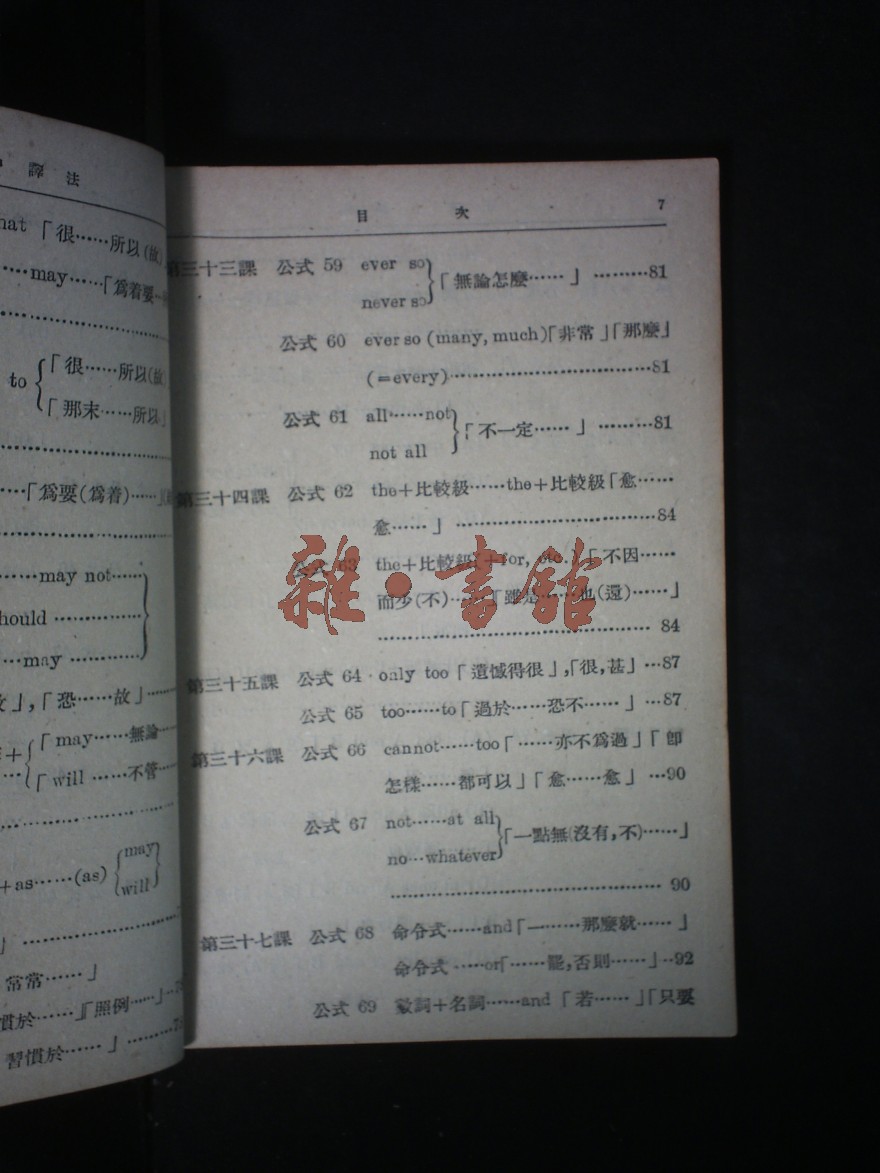 譯法
hat「很……所以(故)
……may……「爲着要…
to「很……所以(故)
「那末……所以」
……「爲要(爲着)……」
……may not……
hould……
……may……
」,「恐……故」……
+「may……無論…
「will……不管…
+as……(as) may
will
」……
常常……」
慣於……」「照例……」
習慣於……」……
目 次 7
第三十三課 公式 59 ever so
never so「無論怎麼……」………81
公式 60 ever so (many, much)「非常」「那麼」
(=every)……………………81
公式 61 all……not
not all「不一定……」………81
第三十四課 公式 62 the+比較級……the+比較級「愈……
愈……」……………………84
公式 63 the+比較級(+for, etc.)「不因……
而少(不)……」「雖是……也(還)……」
…………………………… 84
第三十五課 公式 64 only too「遺憾得很」,「很,甚」…87
公式 65 too……to「過於……恐不……」…87
第三十六課 公式 66 cannot……too「……亦不爲過」「卽
怎樣……都可以」「愈……愈」…90
公式 67 not……at all
no…whatever「一點無(沒有,不)……」
…………………………… 90
第三十七課 公式 68 命令式……and「一………那麼就……」
命令式……or「……罷,否則……」…92
公式 69 數詞+名詞……and「若……」「只要
雜·書館